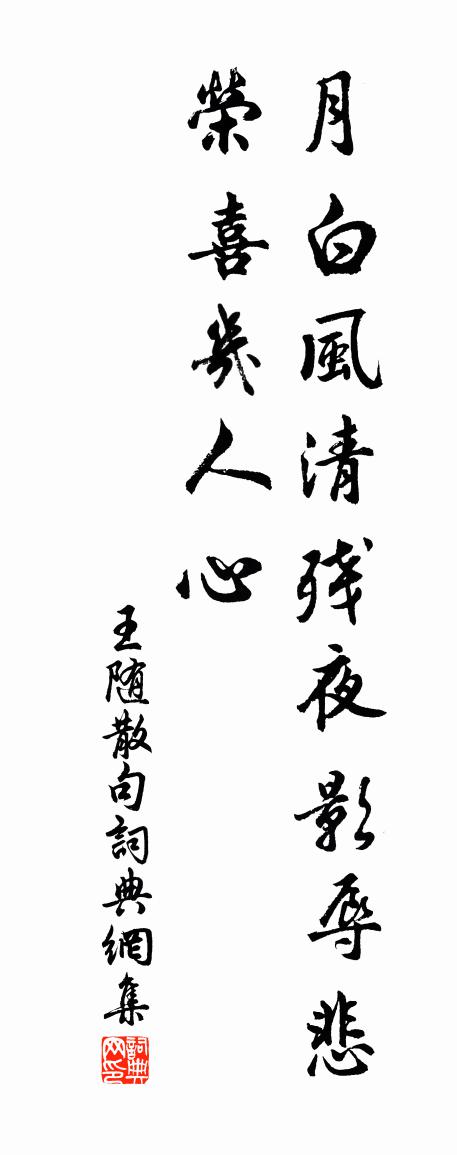 月白風清残夜影辱悲
榮喜幾人心
王随散句詞典網集
詞典网印